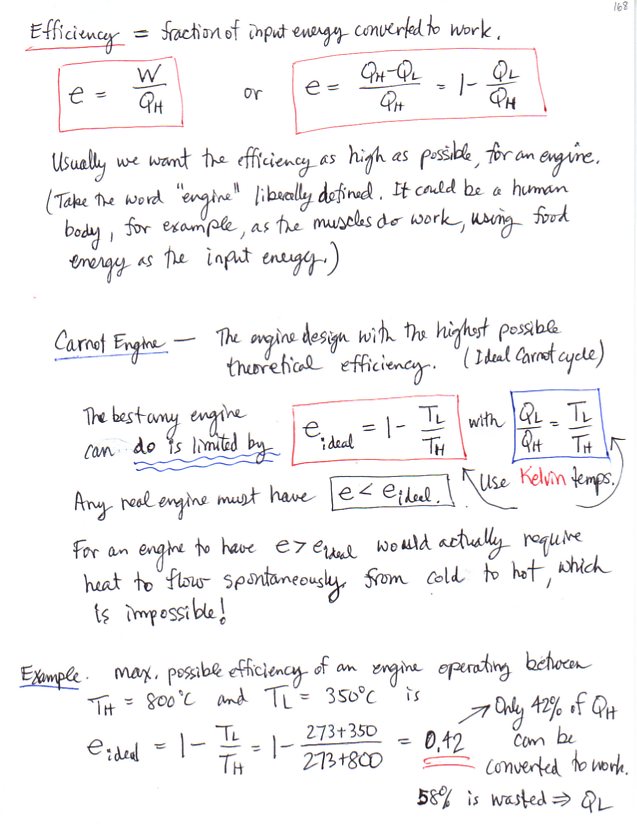 168
Efficiency = fraction of input energy converted to work.
e = W/QH or e = QH-QL/QH = 1- QL/QH
Usually we want the efficiency as high as possible, for an engine.
(Take the word "engine" liberally defined. It could be a human
body, for example, as the muscles do work, using food
energy as the input energy.)
Carnot Engine — The engine design with the highest possible
theoretical efficiency. (Ideal Carnot cycle)
The best any engine
can do is limited by e ideal = 1- TL/TH with QL/QH = TL/TH
Use Kelvin temps.
Any real engine must have e < e ideal.
For an engine to have e > e ideal would actually require
heat to flow spontaneously from cold to hot, which
is impossible!
Example. max. possible efficiency of an engine operating between
TH = 800°C and TL = 350°C is
e ideal = 1- TL/TH = 1- 273+350/273+800 = 0.42
Only 42% of QH
can be
converted to work.
58% is wasted ⇒ QL